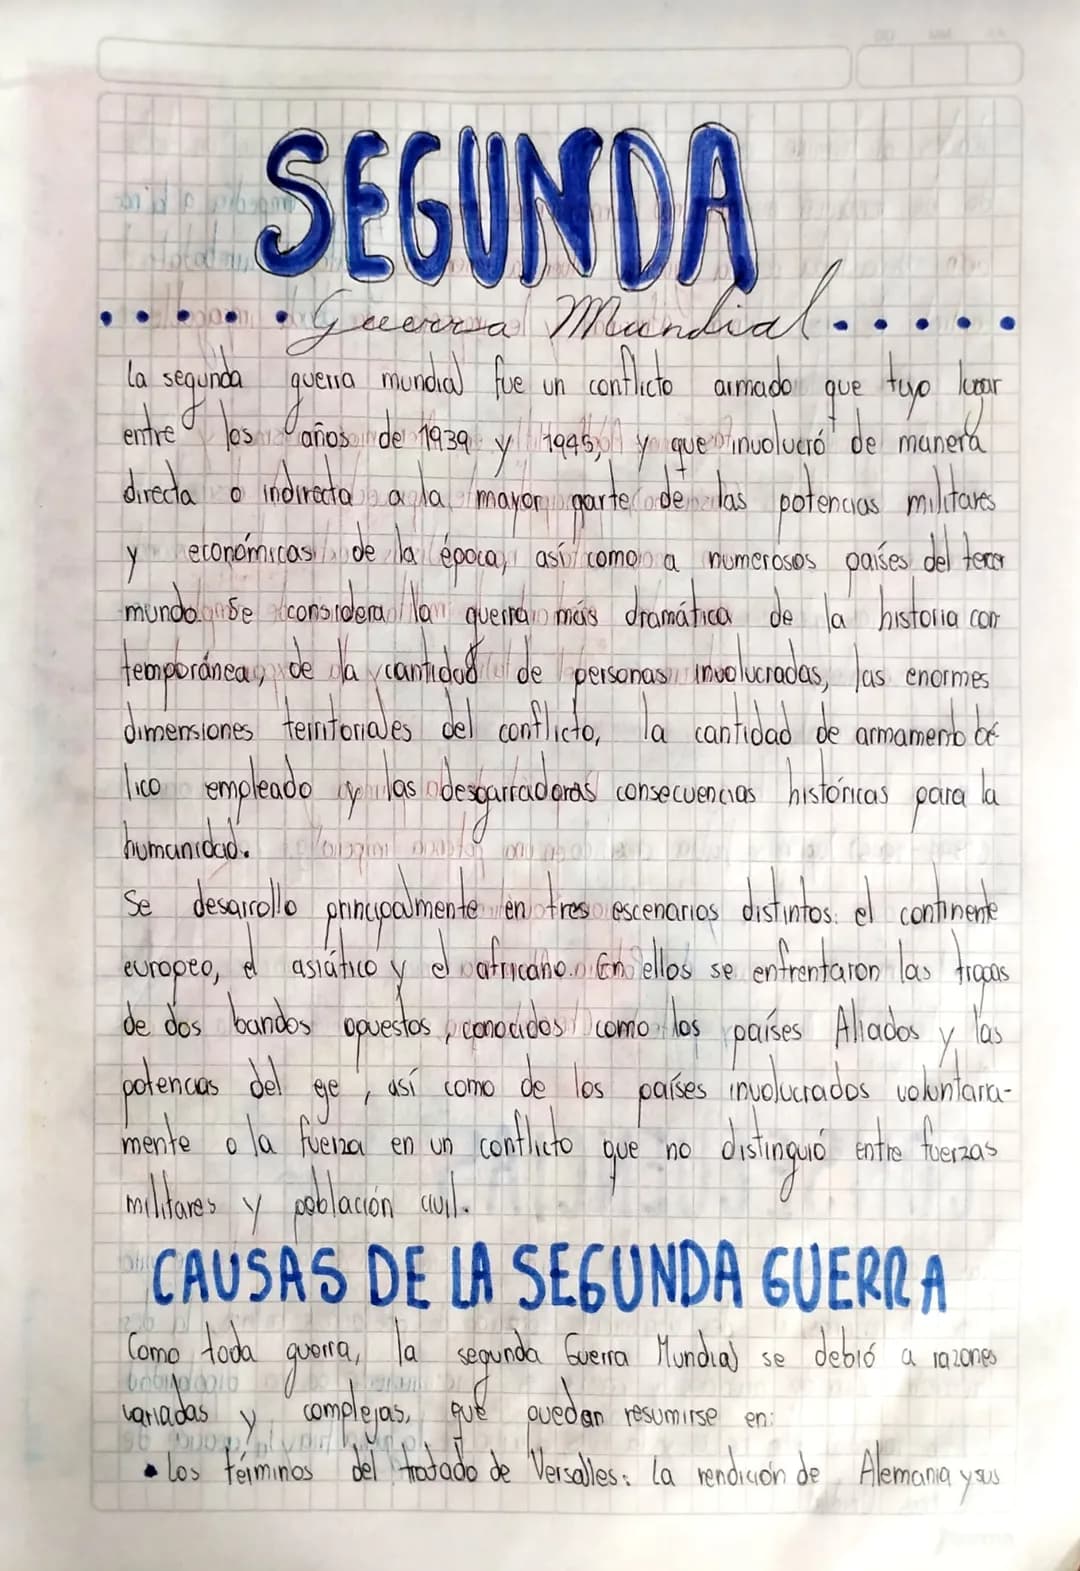 SEGUNDA
Guerra Mundial
la segunda guerra mundial fue un conflicto armado que tuvo lugar
entre los años de 1939 y 1945, y que involucró de manera
directa o indirecta a la mayor parte de las potencias militares
y económicas de la época, así como a numerosos países del tercer
mundo. Se considera la guerra más dramática de la historia con
temporánea, de la cantidad de personas involucradas, las enormes
dimensiones territoriales del conflicto, la cantidad de armamento bé
lico empleado y las desgarradoras consecuencias históricas para la
humanidad.
Se desarrollo principalmente en tres escenarios distintos: el continente
europeo, el asiático y el africano. En ellos se enfrentaron las tropas
de dos bandos opuestos, conocidos como los países Aliados y las
potencias del eje, así como de los países involucrados voluntara-
mente o la fuerza en un conflicto que no distinguió entre fuerzas
militares y población civil.
CAUSAS DE LA SEGUNDA GUERRA
Como toda guerra, la segunda Guerra Mundial se debió a razones
variadas y complejas, que pueden resumirse en:
• Los términos del tratado de Versalles: La rendición de Alemania y sus